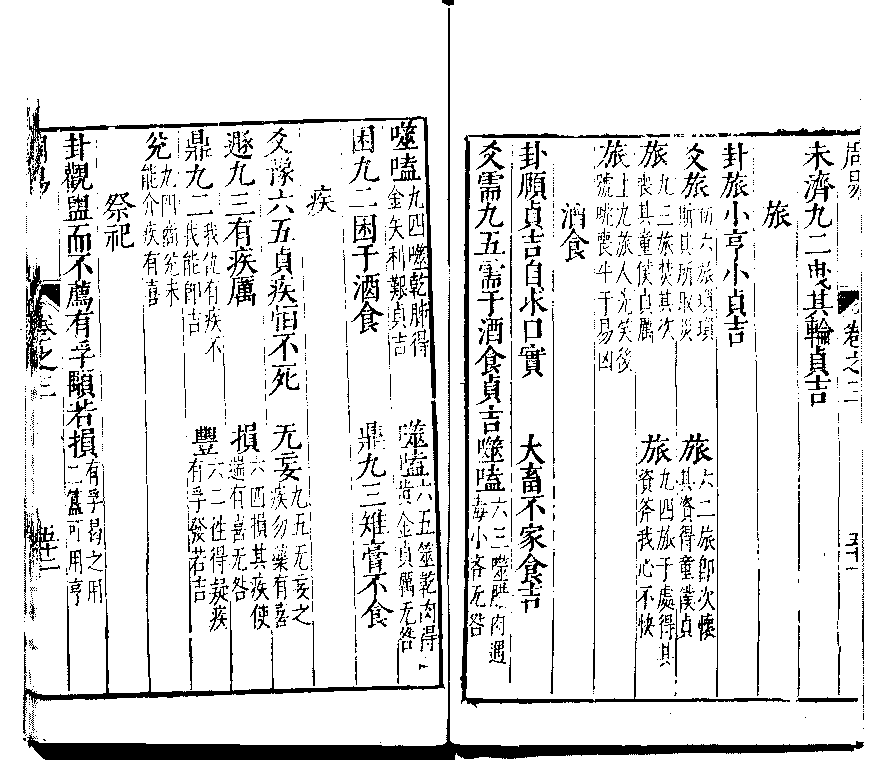 周易 卷之三 五十一
未濟九二曳其輪貞吉
旅
卦旅小亨小貞吉
爻旅初六旅瑣瑣斯其所取災 旅六二旅即次懷其資得童僕貞
旅九三旅焚其次喪其童僕貞厲 旅九四旅于處得其資斧我心不快
旅上九旅人先笑後號咷喪牛于易凶
酒食
卦頤貞吉自求口實 大畜不家食吉
爻需九五需于酒食貞吉噬嗑六三噬腊肉遇毒小吝无咎
噬嗑九四噬乾胏得金矢利艱貞吉 噬嗑六五噬乾肉得黃金貞厲无咎
困九二困于酒食 鼎九三雉膏不食
疾
爻豫六五貞疾恒不死 无妄九五无妄之疾勿藥有喜
遯九三有疾厲 損六四損其疾使遄有喜无咎
鼎九二我仇有疾不我能即吉 豐六二往得疑疾有孚發若吉
兌九四商兌未能介疾有喜
祭祀
卦觀盥而不薦有孚顒若損有孚曷之用二簋可用亨
周易 卷之三 五十二